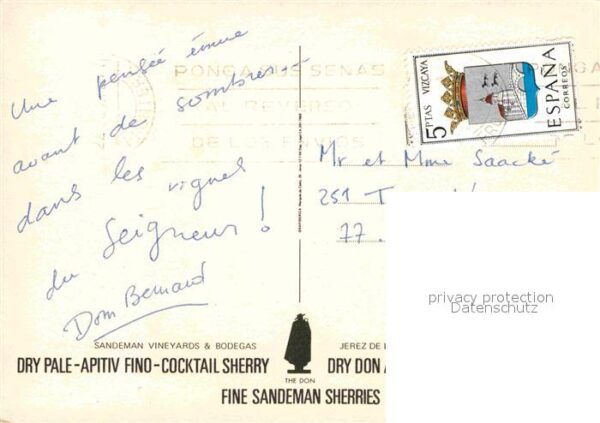 Une pensée émue
avant de sombrer...
dans les vignes
du Seigneur !
Dom Bernard
PONGA SUS SENAS
AL REVERSO
DE LOS ENVIOS
5 PTAS VIZCAYA
ESPAÑA
CORREOS
Mr et Mme Saacké
251
77.
privacy protection
Datenschutz
SANDEMAN VINEYARDS & BODEGAS
JEREZ DE
DRY PALE-APITIV FINO-COCKTAIL SHERRY
DRY DON
THE DON
FINE SANDEMAN SHERRIES